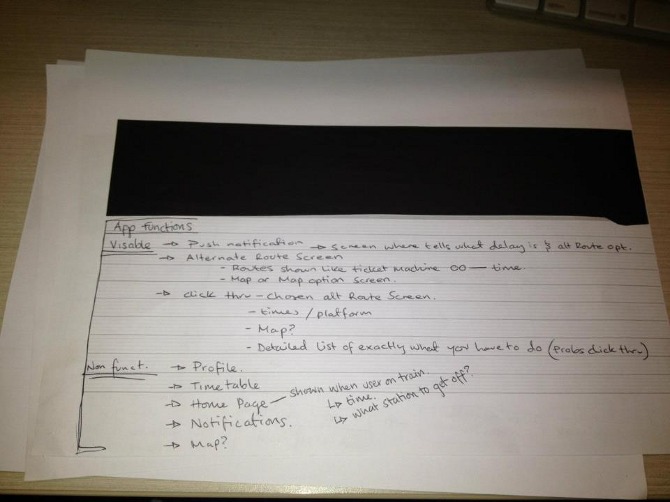 App functions
Visable → Push notification → Screen where tells what delay is & alt Route opt.
→ Alternate Route Screen
- Routes shown like ticket Machine — time.
- Map or Map option screen.
→ click thru - Chosen alt Route Screen.
- times / platform
- Map?
- Detailed list of exactly what you have to do (probs click thru)
Non funct. → Profile.
→ Timetable
→ Home Page — shown when user on train.
↳ time.
↳ what station to get off?
→ Notifications.
→ Map?